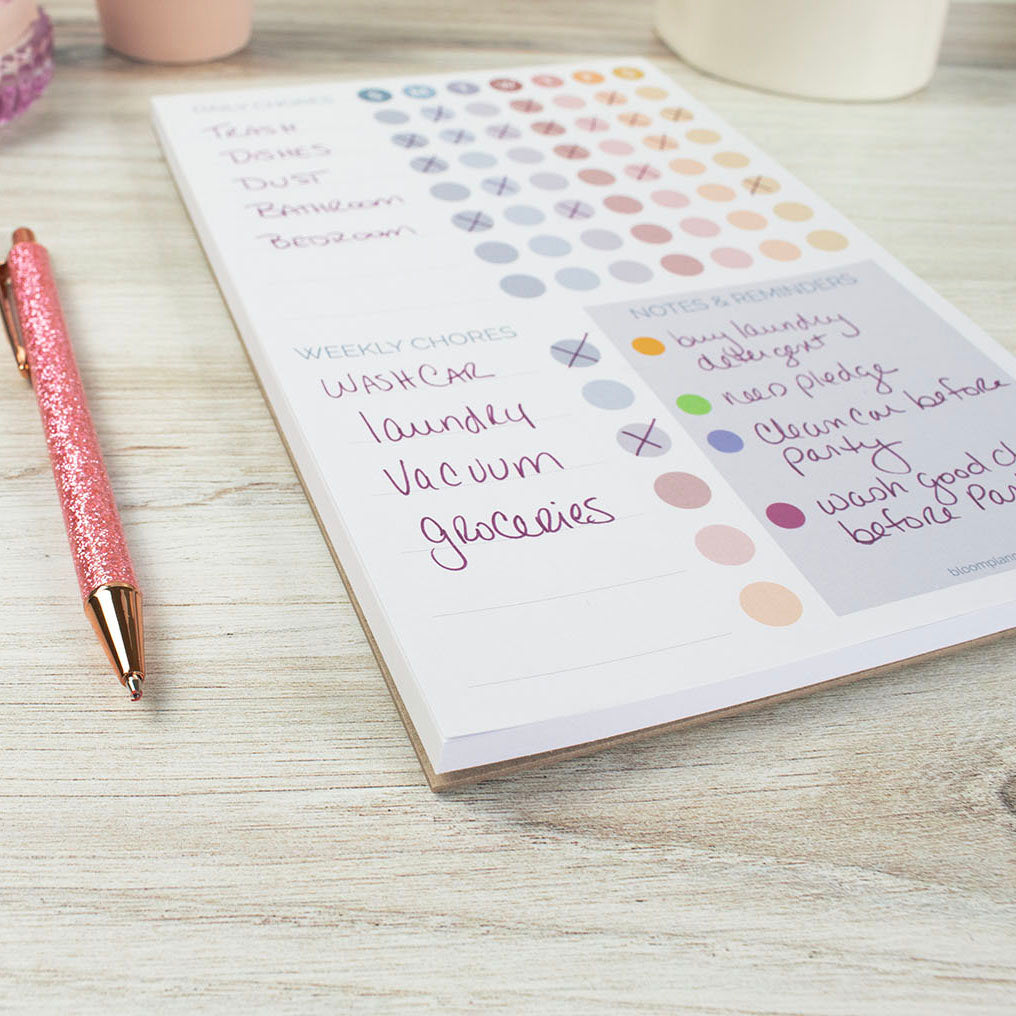 DAILY CHORES
S M T W T F S
TRASH
DISHES
DUST
BATHROOM
BEDROOM
WEEKLY CHORES
WASH CAR
laundry
Vacuum
groceries
NOTES & REMINDERS
buy laundry
detergent
need pledge
clean car before
party
wash good
before
bloomplann